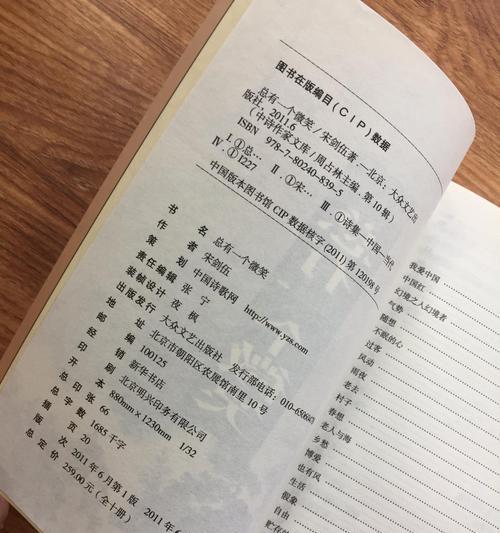 图书在版编目(CIP)数据
总有一个微笑/宋剑伍著—北京：大众文艺出
版社，2011.6
(中诗作家文库/周占林主编.第10辑)
ISBN 978-7-80240-839-5
Ⅰ.①总… Ⅱ.①宋… Ⅲ.①诗集—中国—当代
Ⅳ.①I227
中国版本图书馆CIP数据核字(2011)第120198号
书 名 总有一个微笑
作 者 宋剑伍
策 划 中国诗歌网 http://www.yzs.com
责任编辑 张 宁
装帧设计 夜 枫
出版发行 大众文艺出版社 发行部电话：010-6506
地 址 北京市朝阳区农展馆南里10号
邮 编 100125
经 销 新华书店
印 刷 北京明兴印务有限公司
开 本 880mm×1230mm 1/32
总 印 张 66
总 字 数 1685千字
插 页 20
版 次 2011年6月第1版 2011年6
总 定 价 259.00元(全十册)
我爱中国
中国红
幻境之人幻境者
气势
随想
不眠的心
过客
风动
雨夜
老去
村子
春想
老人与海
乡愁
博爱
也有风
生活
假象
自由